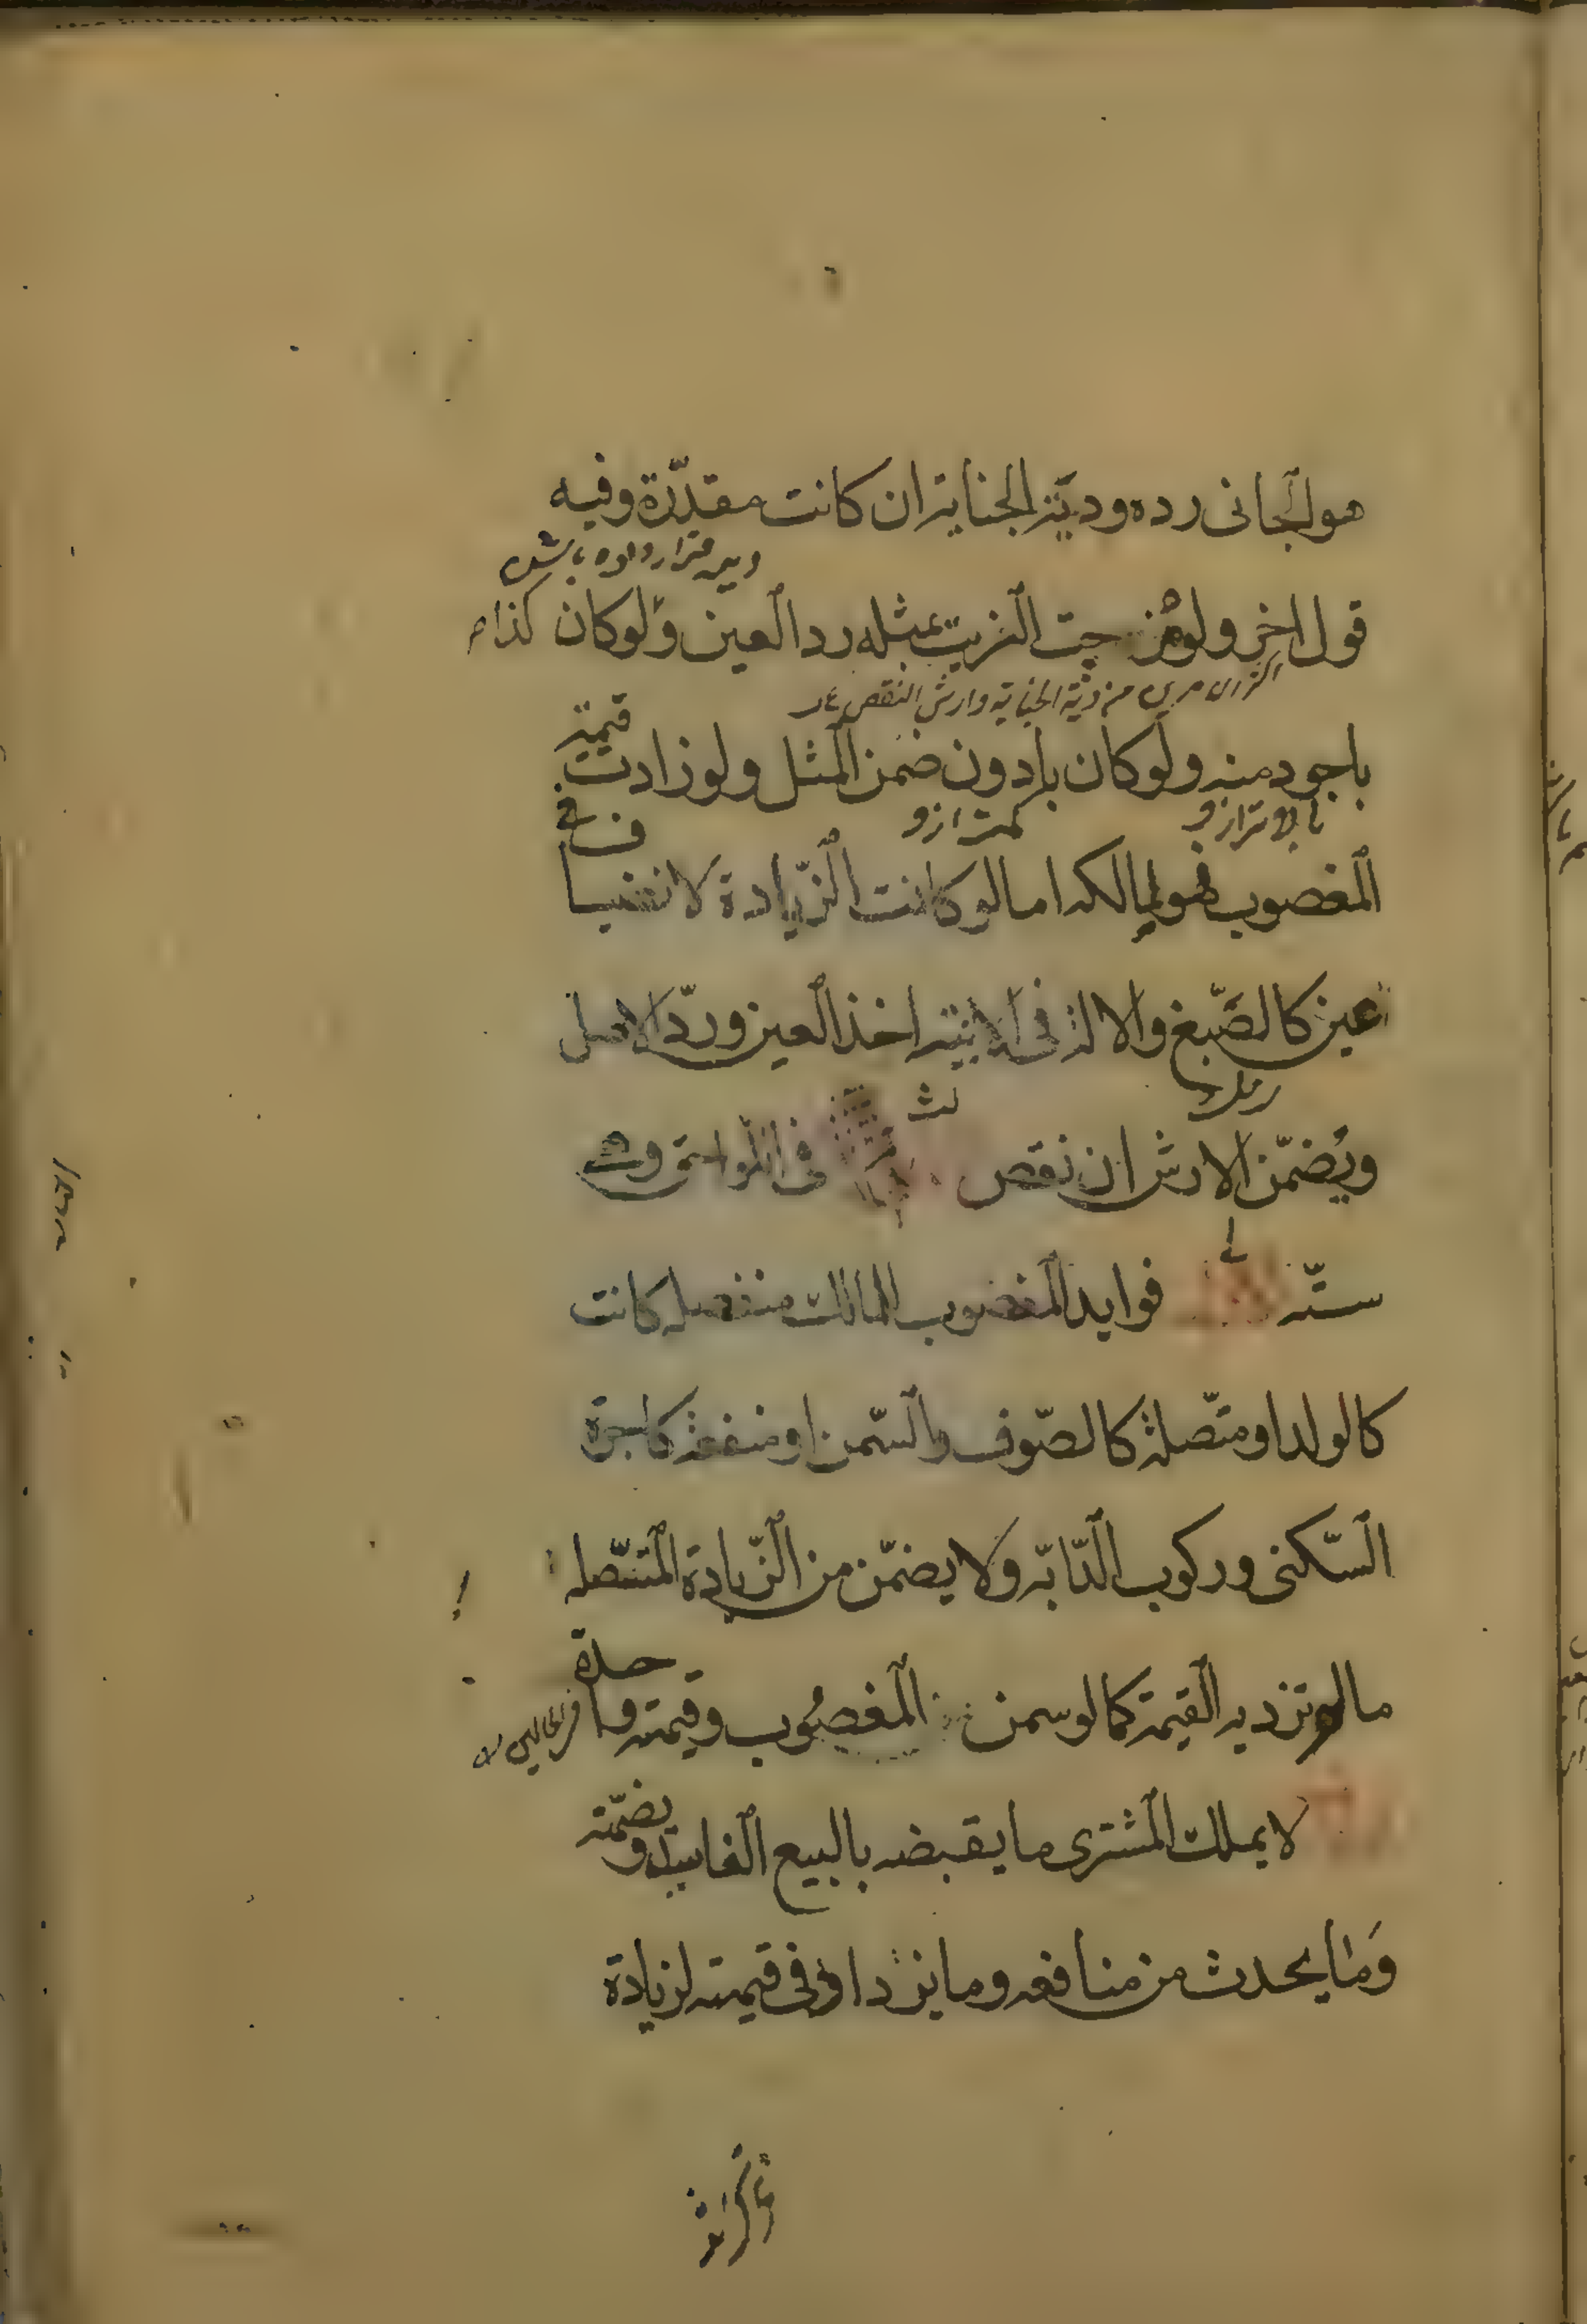 هو الجانى رده ودية الجناية ان كانت مقدّرة وفيه
قول اخر ولو مزجت الزيت بمثله رد العين ولو كان كذا
اكثر الامرين من دية الجناية وارش النقص
باجود منه ولو كان بادون ضمن المثل ولو زادت قيمة
المغصوب فهو لمالكه اما لو كانت الزيادة لانضياف
عين كالصّبغ والالة فى الابنية اخذ العين وردّ الاصل
رنك
ويُضمّن الارش ان نقص فى اللواحق وهى
ستّه فوايد المغصوب للمالك منفصله كانت
كالولد او متّصلة كالصّوف والسّمن او منفعة كاجرة
السّكنى وركوب الدّابّه ولا يضمّن من الزّيادة المتّصله
مالم تزد به القيمة كما لو سمن المغصُوب وقيمته واحدة
لا يملك المشترى ما يقبضه بالبيع الفاسد ويضمّنه
وَمَا يحدث من منافعه وما يزداد فى قيمته لزيادة